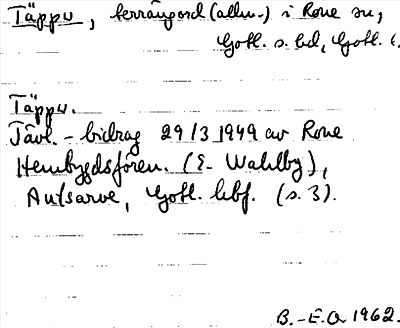 Täppu, terrängord (allm.) i Rone sn,
Gotl. s. hd, Gotl. l.
Täppu.
Tävl.-bidrag 29/3 1949 av Rone
Hembygdsfören. (E. Wahlby),
Autsarve, Gotl. hbf. (s. 3).
B.-E.O. 1962.